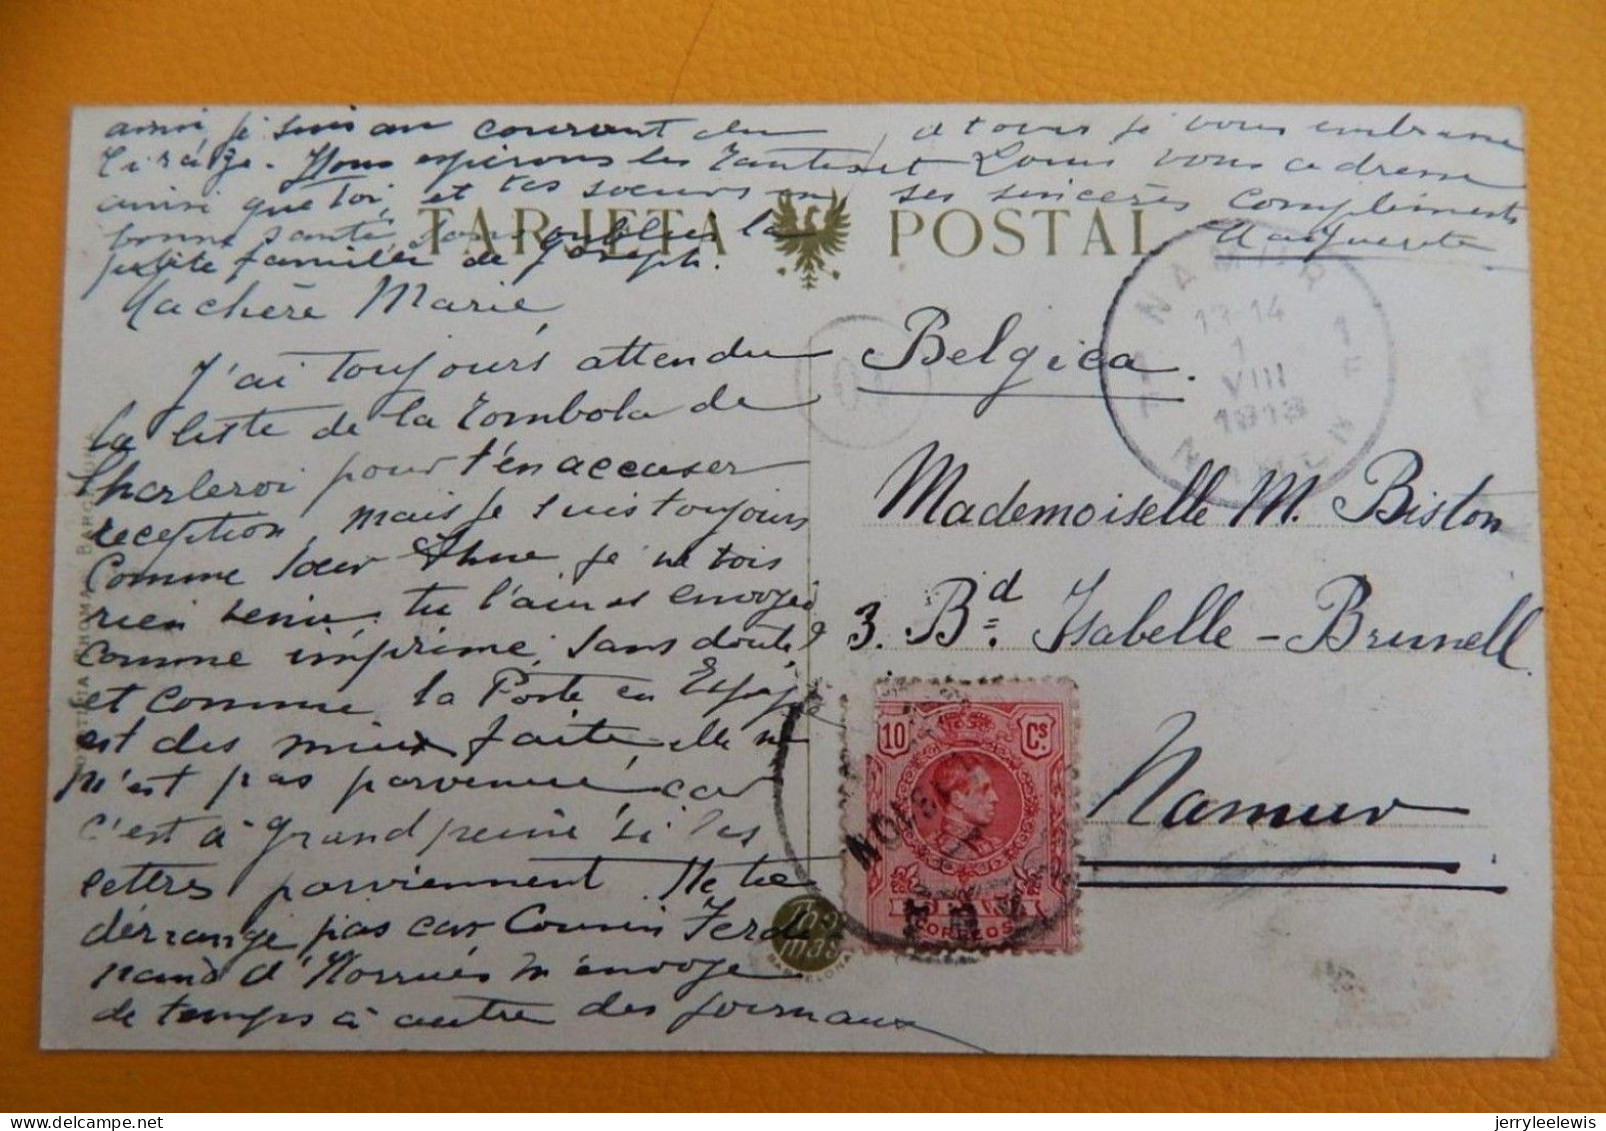 TARJETA POSTAL
Ma chère Marie,
J'ai toujours attendu
la liste de la Tombola de
Charleroi pour t'en accuser
reception, mais je suis toujours
comme soeur Anne, je ne vois
rien venir, tu l'auras envoyé
comme imprimé, sans doute,
et comme la Poste en Espag
est des mieux faite, elle ne
m'est pas parvenue, car
c'est à grand peine si les
lettres parviennent Ne te
dérange pas car Cousin Ferdi
nand d'Horrues m'envoye
de temps à autre des journaux
ainsi je suis au courant du
tirage. Nous espérons les Tantes
ainsi que toi, et tes soeurs en
bonne santé, sans oublier la
petite famille de Joseph.
à tous je vous embrasse
et Louis vous adresse
ses sincères compliments
Marguerite
Belgica.
Mademoiselle M. Biston
3. Bd. Isabelle-Brunell
Namur
NAMUR
13-14
1
VIII
1913
NAMEN
1 F
10 Cs.
CORREOS
Thomas
BARCELONA
jerryleelewis